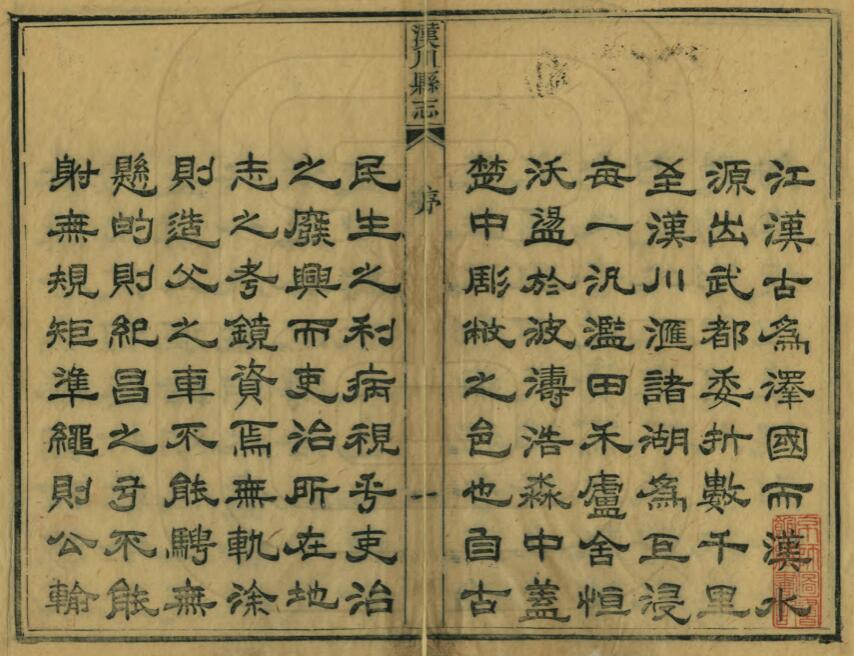 江漢古為澤國而漢水
源出武都委折數千里
至漢川滙諸湖為巨浸
每一汎濫田禾廬舍恒
沃盪於波濤浩淼中蓋
楚中彫敝之邑也自古
漢川縣志
序
一
民生之利病視乎吏治
之廢興而吏治所在地
志之考鏡資焉無軌涂
則造父之車不能騁無
懸的則紀昌之弓不能
射無規矩準繩則公輸